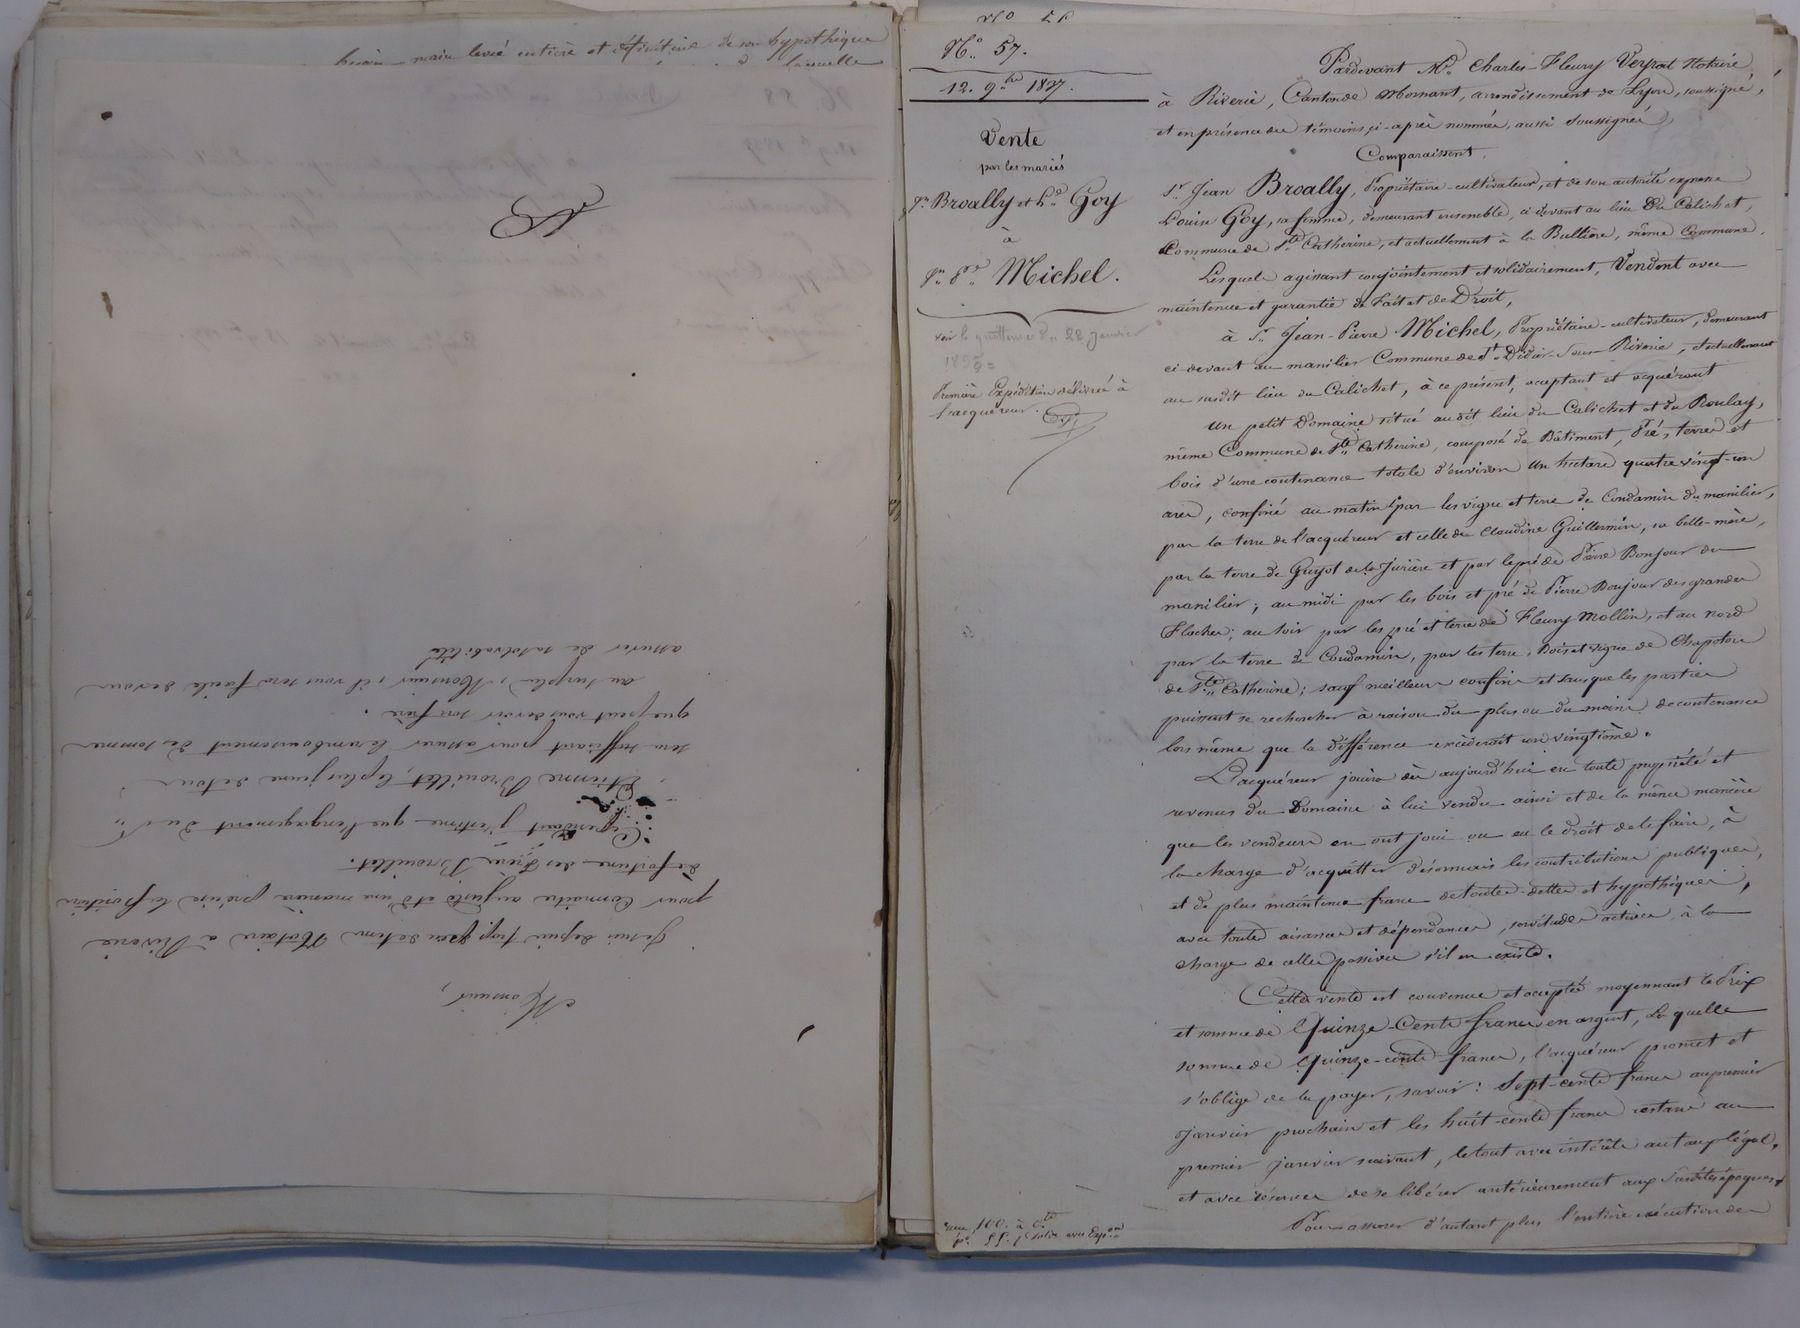 besoin main levée entière et définitive de son hypothèque
laquelle
Monsieur,
Je suis depuis trop peu de tems Notaire à Riverie
pour connaitre au juste et d'une manière précise la position
de fortune des frères Brouillet.
Cependant j'estime que l'engagement du S.r
Etienne Brouillet, le plus jeune de tous
sera suffisant pour assurer le remboursement des sommes
que peut vous devoir son frère.
au surplus, Monsieur, il vous sera facile de vous
assurer de sa solvabilité
N.o 57.
12. 9.bre 1837.
Vente
par les mariés
J.n Broally et L.se Goy
à
J.n P.re Michel.
voir la quittance du 22 janvier
Première Expédition délivrée à
l'acquéreur.
Pardevant M.e Charles-Fleury Veyrat Notaire
à Riverie, Canton de Mornant, arrondissement de Lyon, soussigné,
et en présence des témoins ci-après nommés, aussi soussignés,
Comparaissent,
S.r Jean Broally, Propriétaire-cultivateur, et de son autorité expresse
Louise Goy, sa femme, demeurant ensemble, ci-devant au lieu Du Calichet,
Commune de S.te Catherine, et actuellement à la Bullière, même Commune.
Lesquels agissant conjointement et solidairement, Vendent avec
maintenue et garantie de Fait et de Droit,
à S.r Jean-Pierre Michel, Propriétaire-cultivateur, demeurant
ci-devant au manilier Commune de S.t Didier-Sous-Riverie, et actuellement
au susdit lieu du Calichet, à ce présent, acceptant et acquérant
un petit Domaine situé au dit lieu du Calichet et du Roulay,
même Commune de S.te Catherine, composé de Bâtiment, Pré, terres et
bois d'une contenance totale d'environ un hectare quatre vingt-un
ares, confiné au matin par les vigne et terre de Condamin du manilier,
par la terre de l'acquéreur et celle de Claudine Guillermin, sa belle-mère,
par la terre de Guyot de la Jurière et par le pré de Pierre Bonjour du
manilier; au midi par les bois et pré de Pierre Bonjour des grandes
Flaches; au soir par les pré et terre de Fleury Mollin, et au nord
par la terre de Condamin, par les terre, Bois et vigne de Chapoton
de S.te Catherine; sauf meilleurs confins et sans que les parties
puissent se rechercher à raison du plus ou du moins de contenance
lors même que la différence excéderait un vingtième.
L'acquéreur jouira dès aujourd'hui en toute propriété et
revenus du Domaine à lui vendu ainsi et de la même manière
que les vendeurs en ont joui ou eu le droit de le faire, à
la charge d'acquitter désormais les contributions publiques,
et de plus maintenu franc de toutes dettes et hypothèques,
avec toutes aisances et dépendances, servitudes actives, à la
charge de celles passives s'il en existe.
Cette vente est convenue et acceptée moyennant le Prix
et somme de Quinze-Cents francs en argent, La quelle
somme de Quinze-cents francs, l'acquéreur promet et
s'oblige de la payer, savoir: Sept-cents francs au premier
Janvier prochain et les huit-cents francs restans au
premier janvier suivant, le tout avec intérêts au taux légal,
et avec réserve de se libérer antérieurement aux susdites époques.
Pour assurer d'autant plus l'entière exécution des